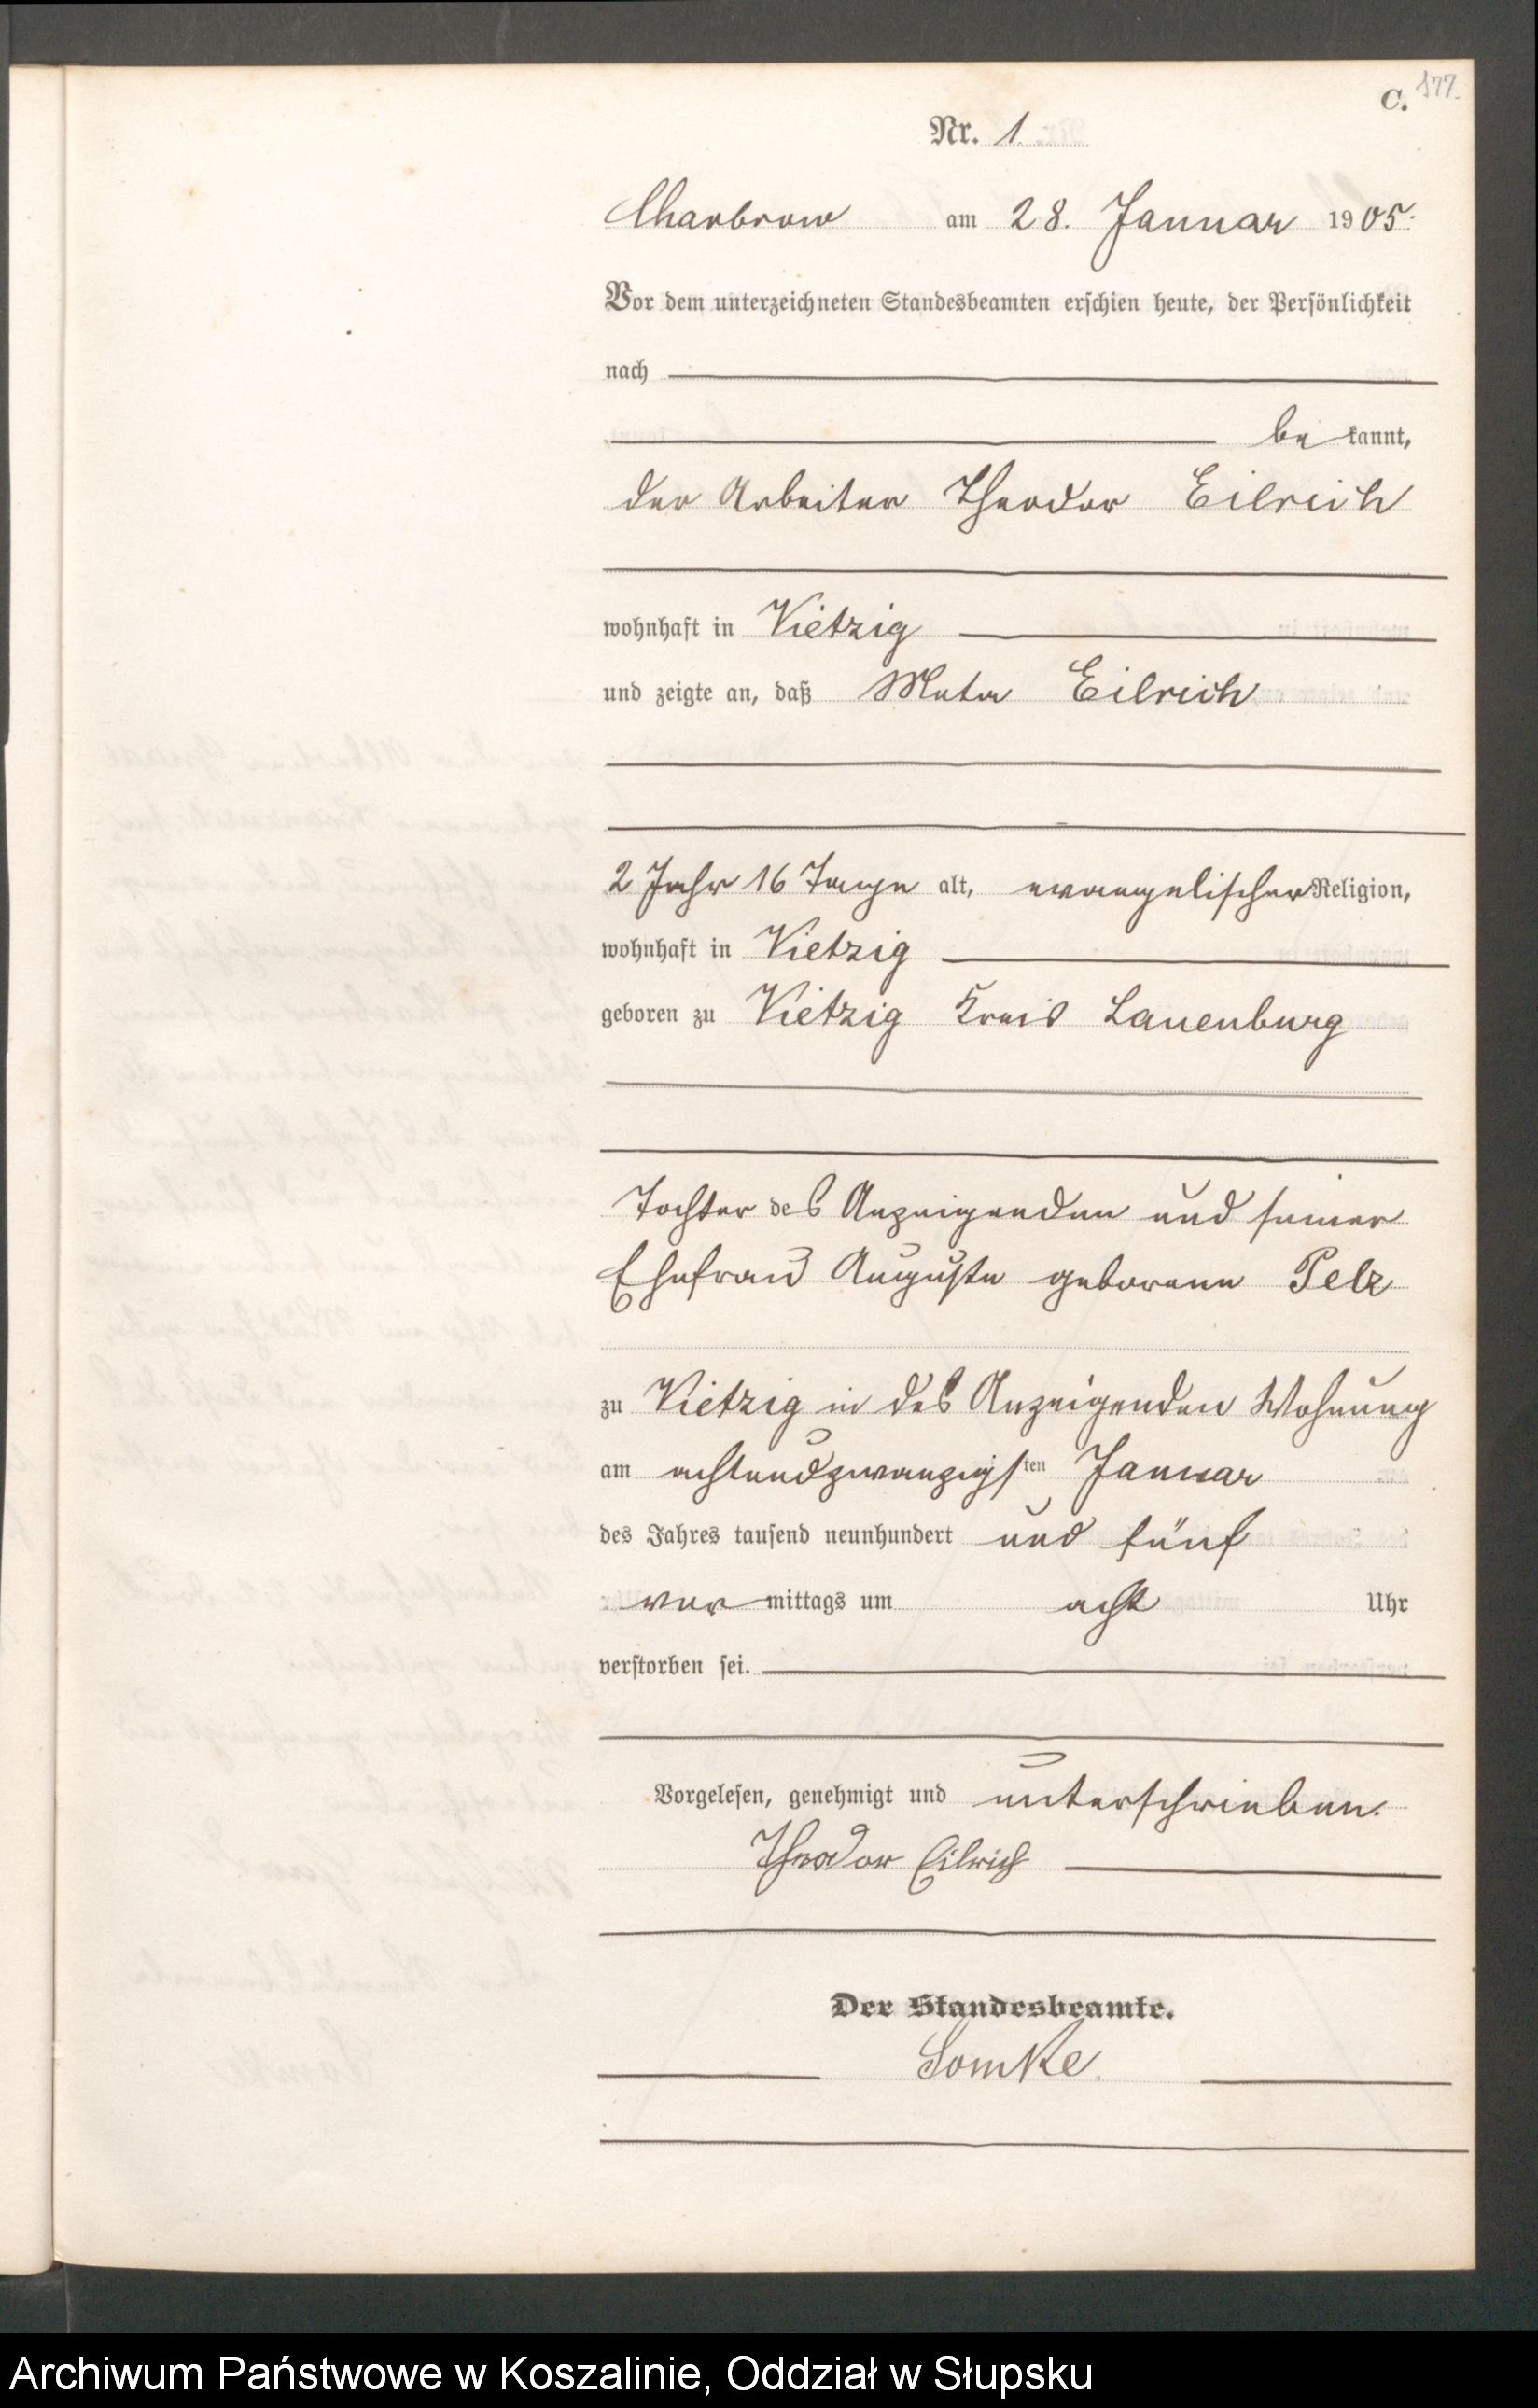 C. 177.
Nr. 1.
Charbrow am 28. Januar 1905.
Vor dem unterzeichneten Standesbeamten erschien heute, der Persönlichkeit
nach
be kannt,
der Arbeiter Theodor Eilrich
wohnhaft in Vietzig
und zeigte an, daß Meta Eilrich
2 Jahr 16 Tage alt, evangelischer Religion,
wohnhaft in Vietzig
geboren zu Vietzig Kreis Lauenburg
Tochter des Anzeigenden und seiner
Ehefrau Auguste geborene Pelz
zu Vietzig in des Anzeigenden Wohnung
am achtundzwanzigsten Januar
des Jahres tausend neunhundert und fünf
vor mittags um acht Uhr
verstorben sei.
Vorgelesen, genehmigt und unterschrieben.
Theodor Eilrich
Der Standesbeamte.
Somke
Archiwum Państwowe w Koszalinie, Oddział w Słupsku